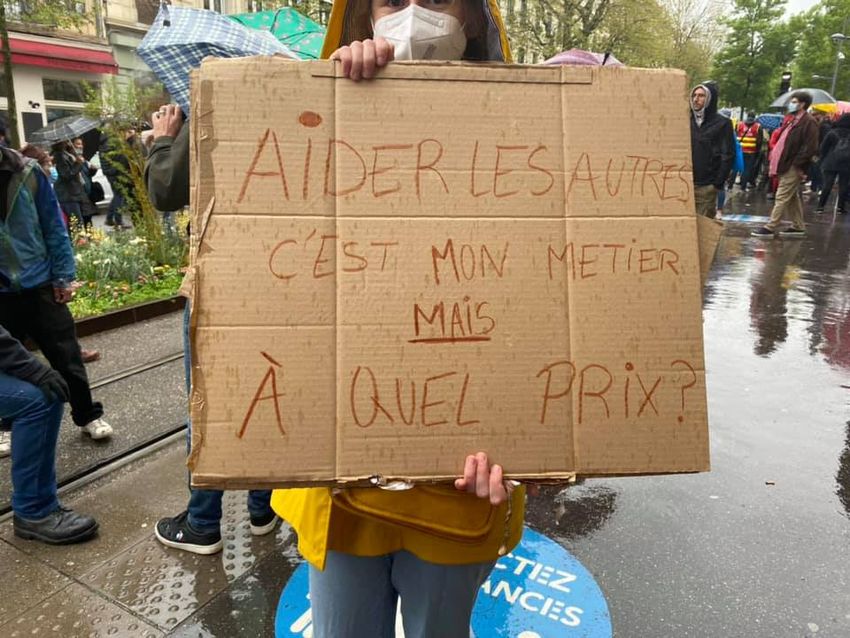 AiDER LES AUTRES
C'EST MON METIER
MAiS
À QUEL PRiX?
CTEZ
ANCES